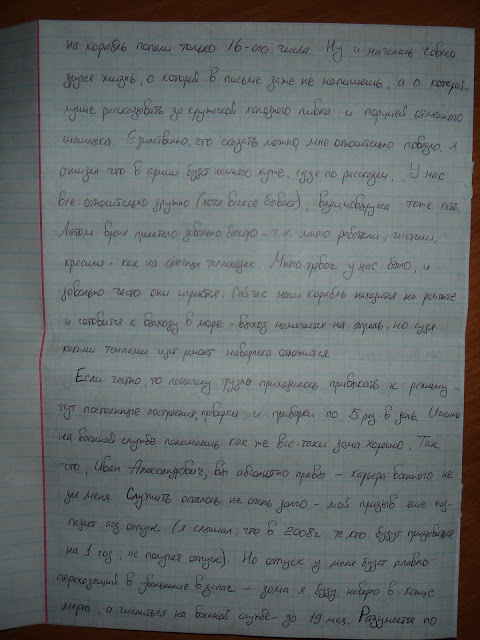 на корабль попали только 16-ого числа. Ну и началась совсем
другая жизнь, о которой в письме даже не напишешь, а о которой
лучше рассказывать за кружечкой холодного пивка и порцией отменного
шашлыка. Единственно, что сказать можно мне относительно повезло. Я
ожидал что в армии будет намного хуже, судя по рассказам. У нас
все относительно дружно (хотя всякое бывает), взаимовыручка тоже есть.
Летом время пролетело довольно быстро - т.к. много работали, чистили,
красили - как на обычных теплоходах. Много тревог у нас было, и
довольно часто они играются. Сейчас наш корабль находится на ремонте
и готовится к выходу в море - выход намечается на апрель, но судя
какими темпами идет ремонт наверняка отложится.
Если честно, то поначалу трудно приходилось привыкать к режиму -
тут постоянные построения, поверки и приборки по 5 раз в день. Именно
на военной службе понимаешь как же все-таки дома хорошо. Так
что, Иван Александрович, вы абсолютно правы - карьера военного не
для меня. Служить осталось не очень долго - мой призыв еще поп-
падает под отпуск (я слышал, что в 2008г те, кто будут призываться
на 1 год, не получат отпуск). Но отпуск у меня будет плавно
переходящий в увольнение в запас - дома я буду наверно в конце
марта, а числиться на военной службе - до 19 мая. Разумеется по